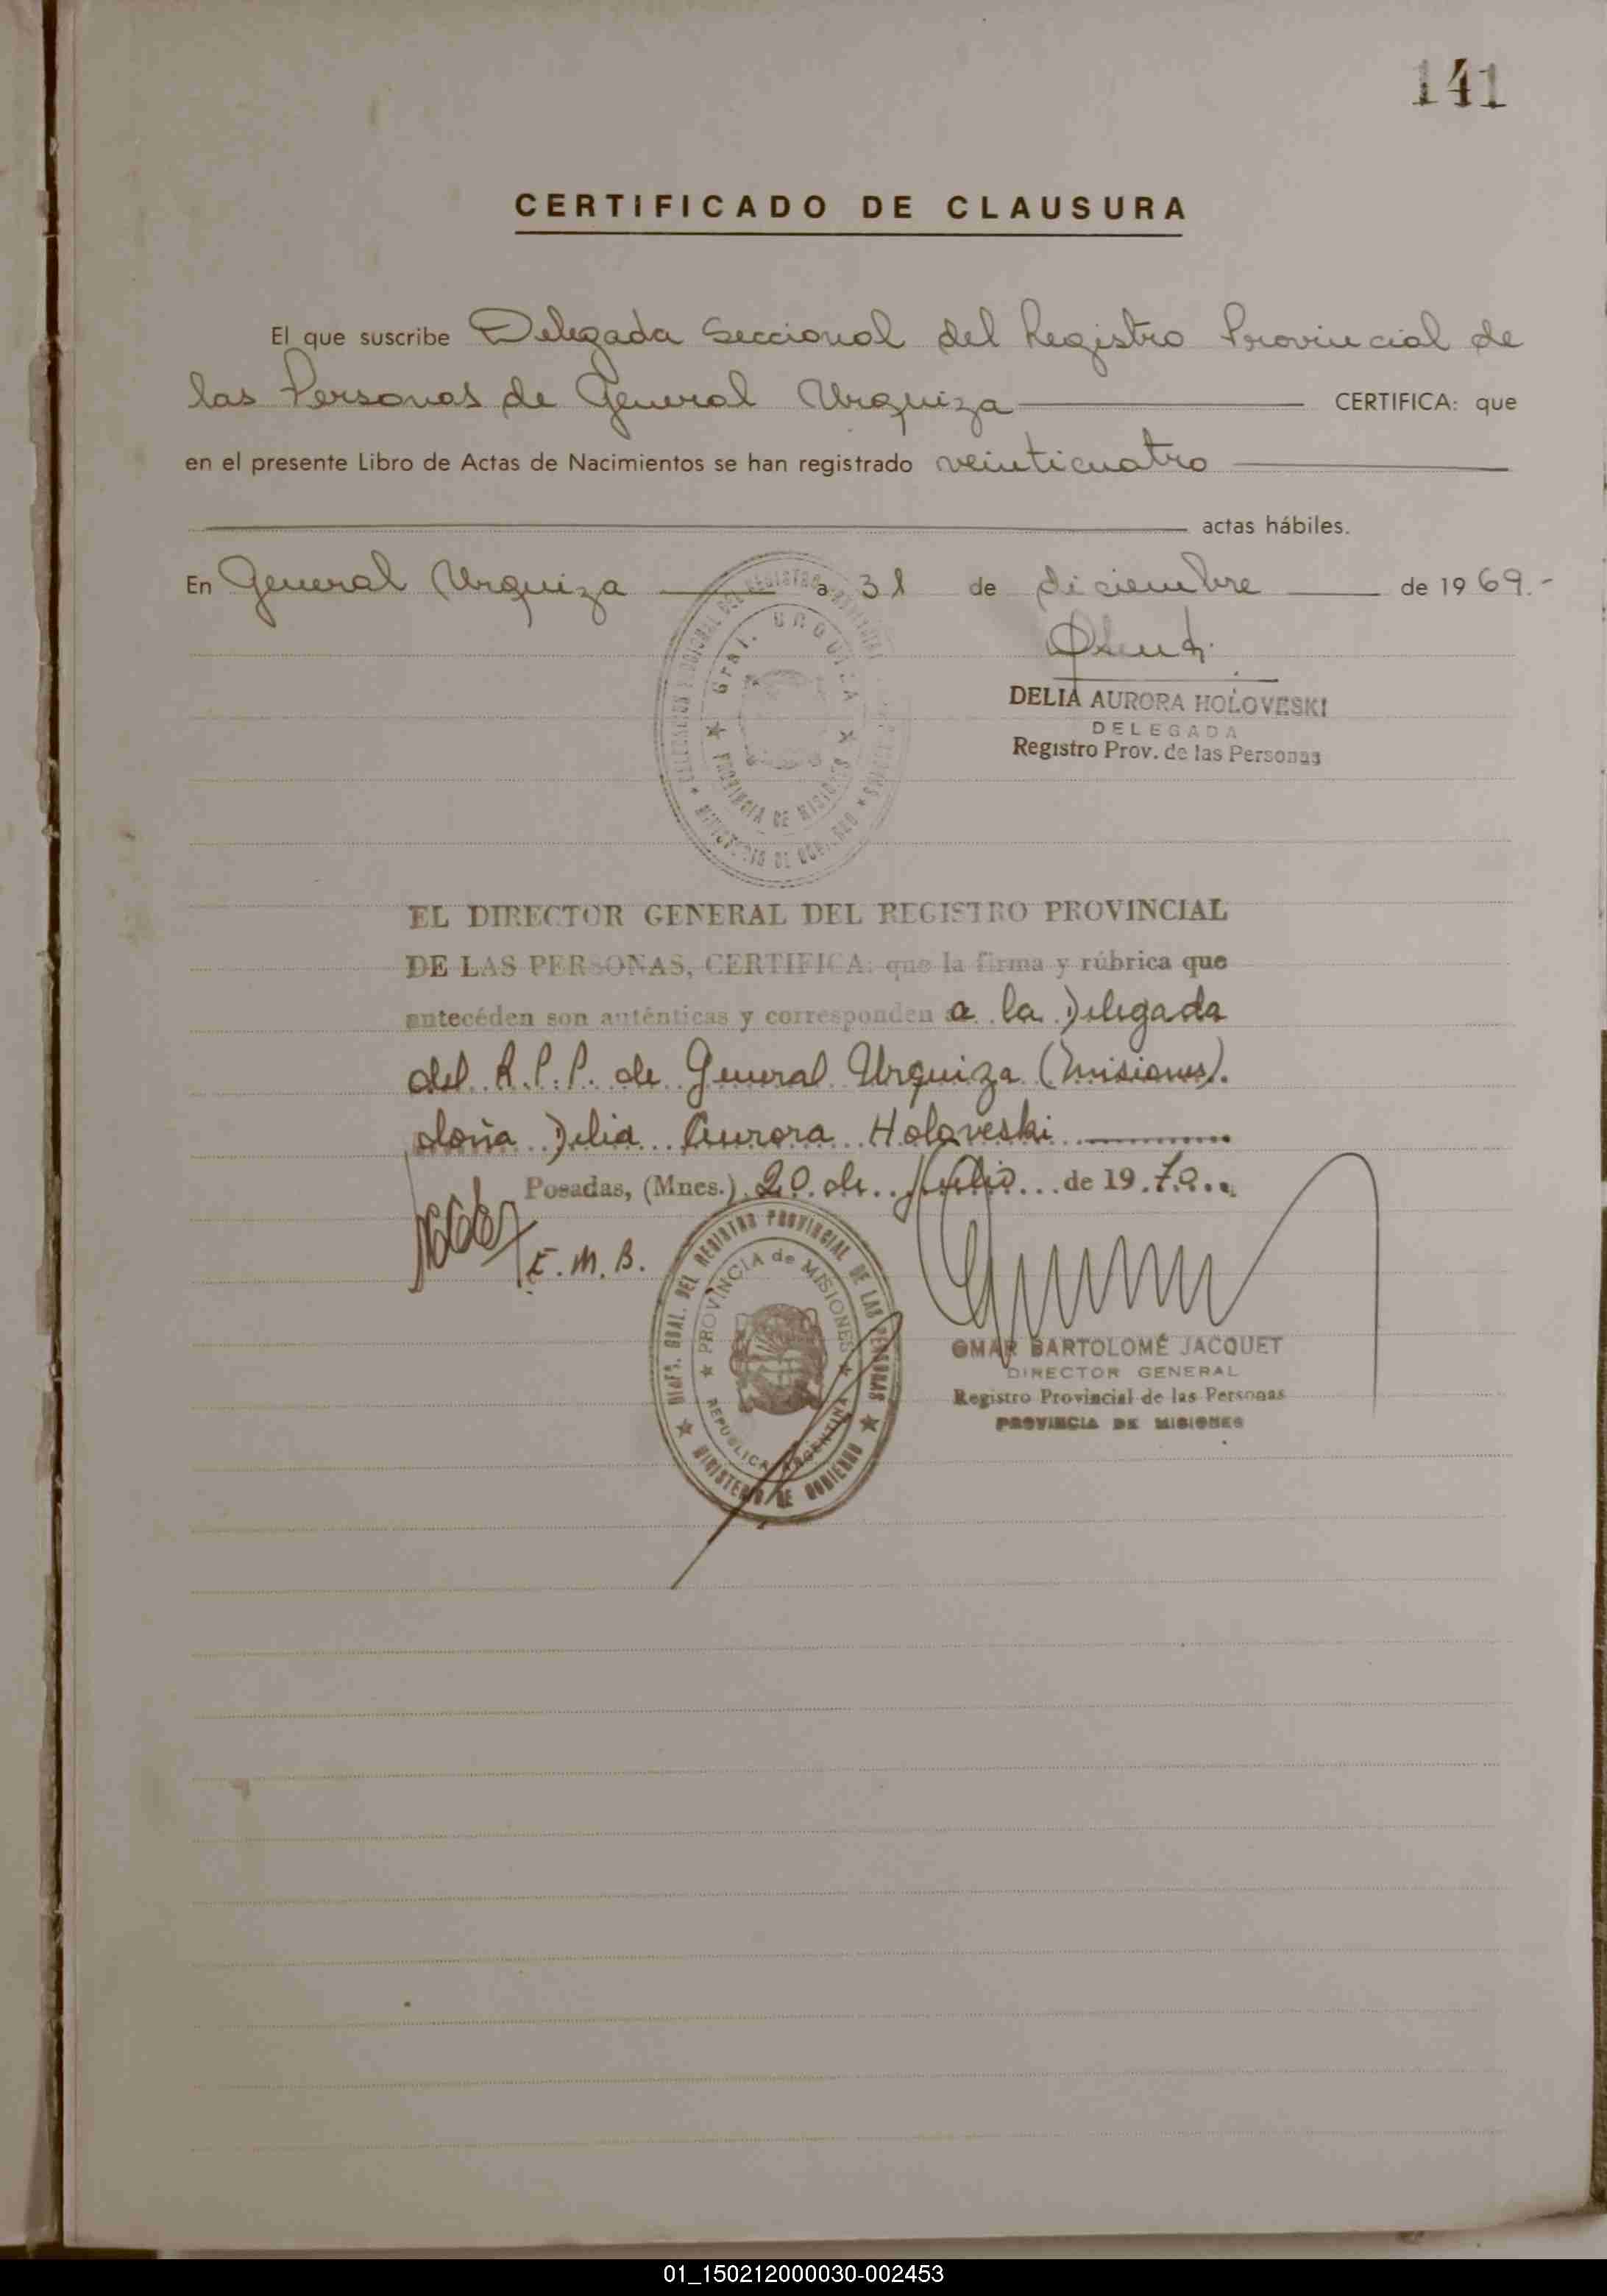 141
CERTIFICADO DE CLAUSURA
El que suscribe Delegada Seccional del Registro Provincial de
las Personas de General Urquiza CERTIFICA: que
en el presente Libro de Actas de Nacimientos se han registrado veinticuatro
actas hábiles.
En General Urquiza a 31 de diciembre de 1969.-
DELEGACION SECCIONAL DEL REGISTRO PROVINCIAL DE LAS PERSONAS
Gral. URQUIZA
PROVINCIA DE MISIONES
MINISTERIO DE GOBIERNO
DELIA AURORA HOLOVESKI
DELEGADA
Registro Prov. de las Personas
EL DIRECTOR GENERAL DEL REGISTRO PROVINCIAL
DE LAS PERSONAS, CERTIFICA: que la firma y rúbrica que
antecéden son auténticas y corresponden a la Delegada
del R.P.P. de General Urquiza (Misiones).
doña Delia Aurora Holoveski
Posadas, (Mnes.) 20 de Julio de 1970
E.M.B.
DIREC. GRAL. DEL REGISTRO PROVINCIAL DE LAS PERSONAS
PROVINCIA de MISIONES
REPUBLICA ARGENTINA
MINISTERIO DE GOBIERNO
OMAR BARTOLOMÉ JACQUET
DIRECTOR GENERAL
Registro Provincial de las Personas
PROVINCIA DE MISIONES
01_150212000030-002453